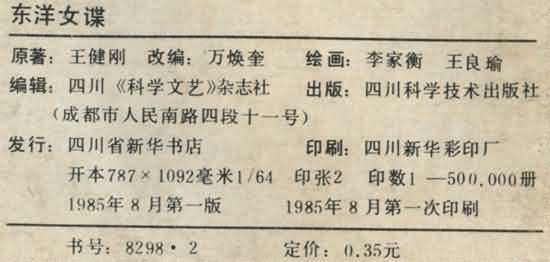 东洋女谍
原著：王健刚 改编：万焕奎 绘画：李家衡 王良瑜
编辑：四川《科学文艺》杂志社 出版：四川科学技术出版社
（成都市人民南路四段十一号）
发行：四川省新华书店 印刷：四川新华彩印厂
开本787×1092毫米1/64 印张2 印数1—500,000册
1985年8月第一版 1985年8月第一次印刷
书号：8298·2 定价：0.35元